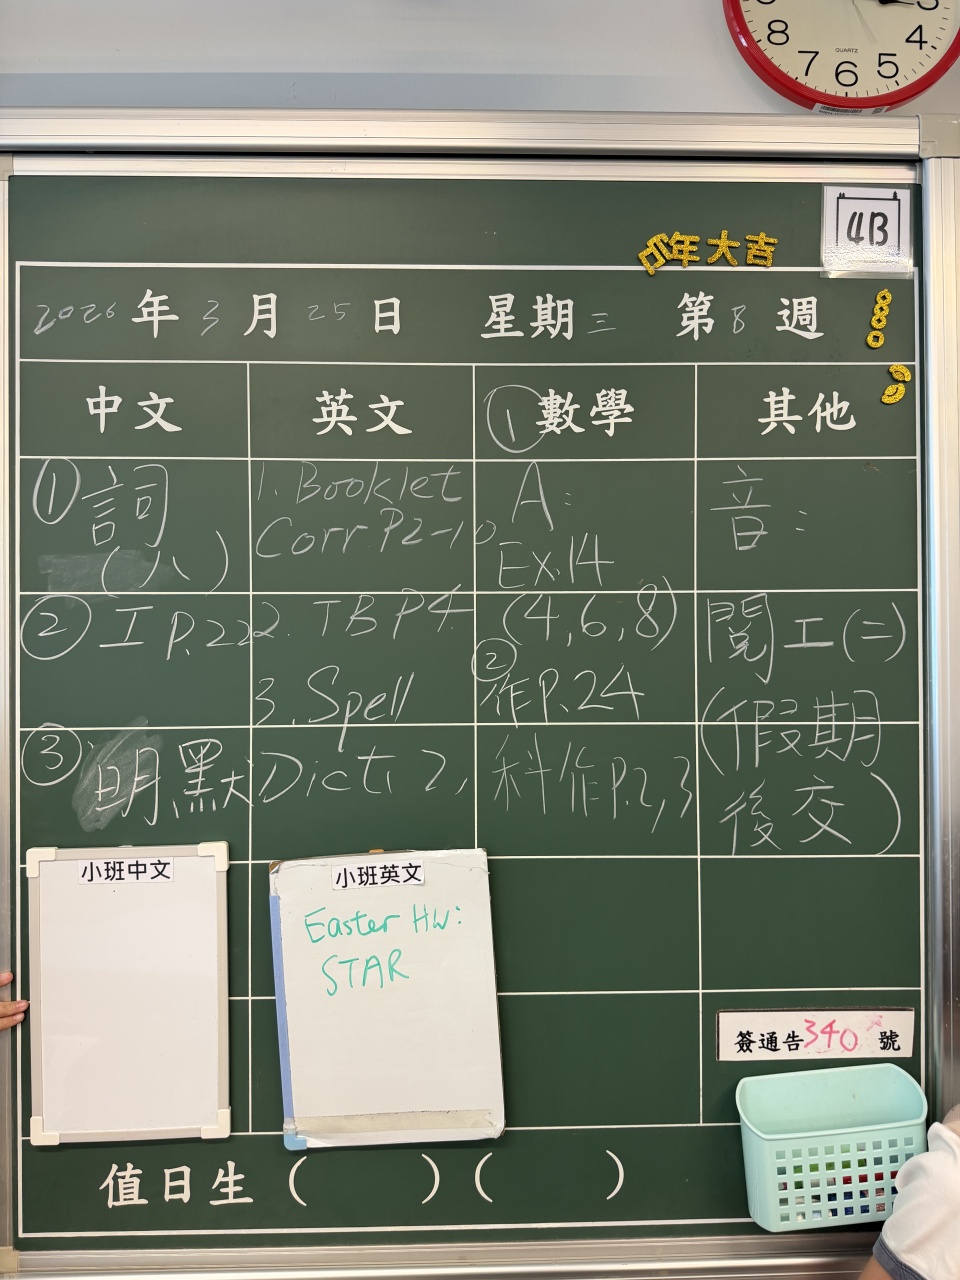 8 7 6 5 4 3
QUARTZ
4B
年大吉
2026年3月25日 星期三 第8週
中文 英文 ①數學 其他
①詞
(八)
②工P.22
③明默
1. Booklet
Corr. P2-10
2. TB P4
3. Spell
Dict. 2,
A:
Ex.14
(4,6,8)
②作P.24
科作P.2,3
音:
閱工(二)
(假期
後交)
小班中文
小班英文
Easter HW:
STAR
簽通告340號
值日生( )( )